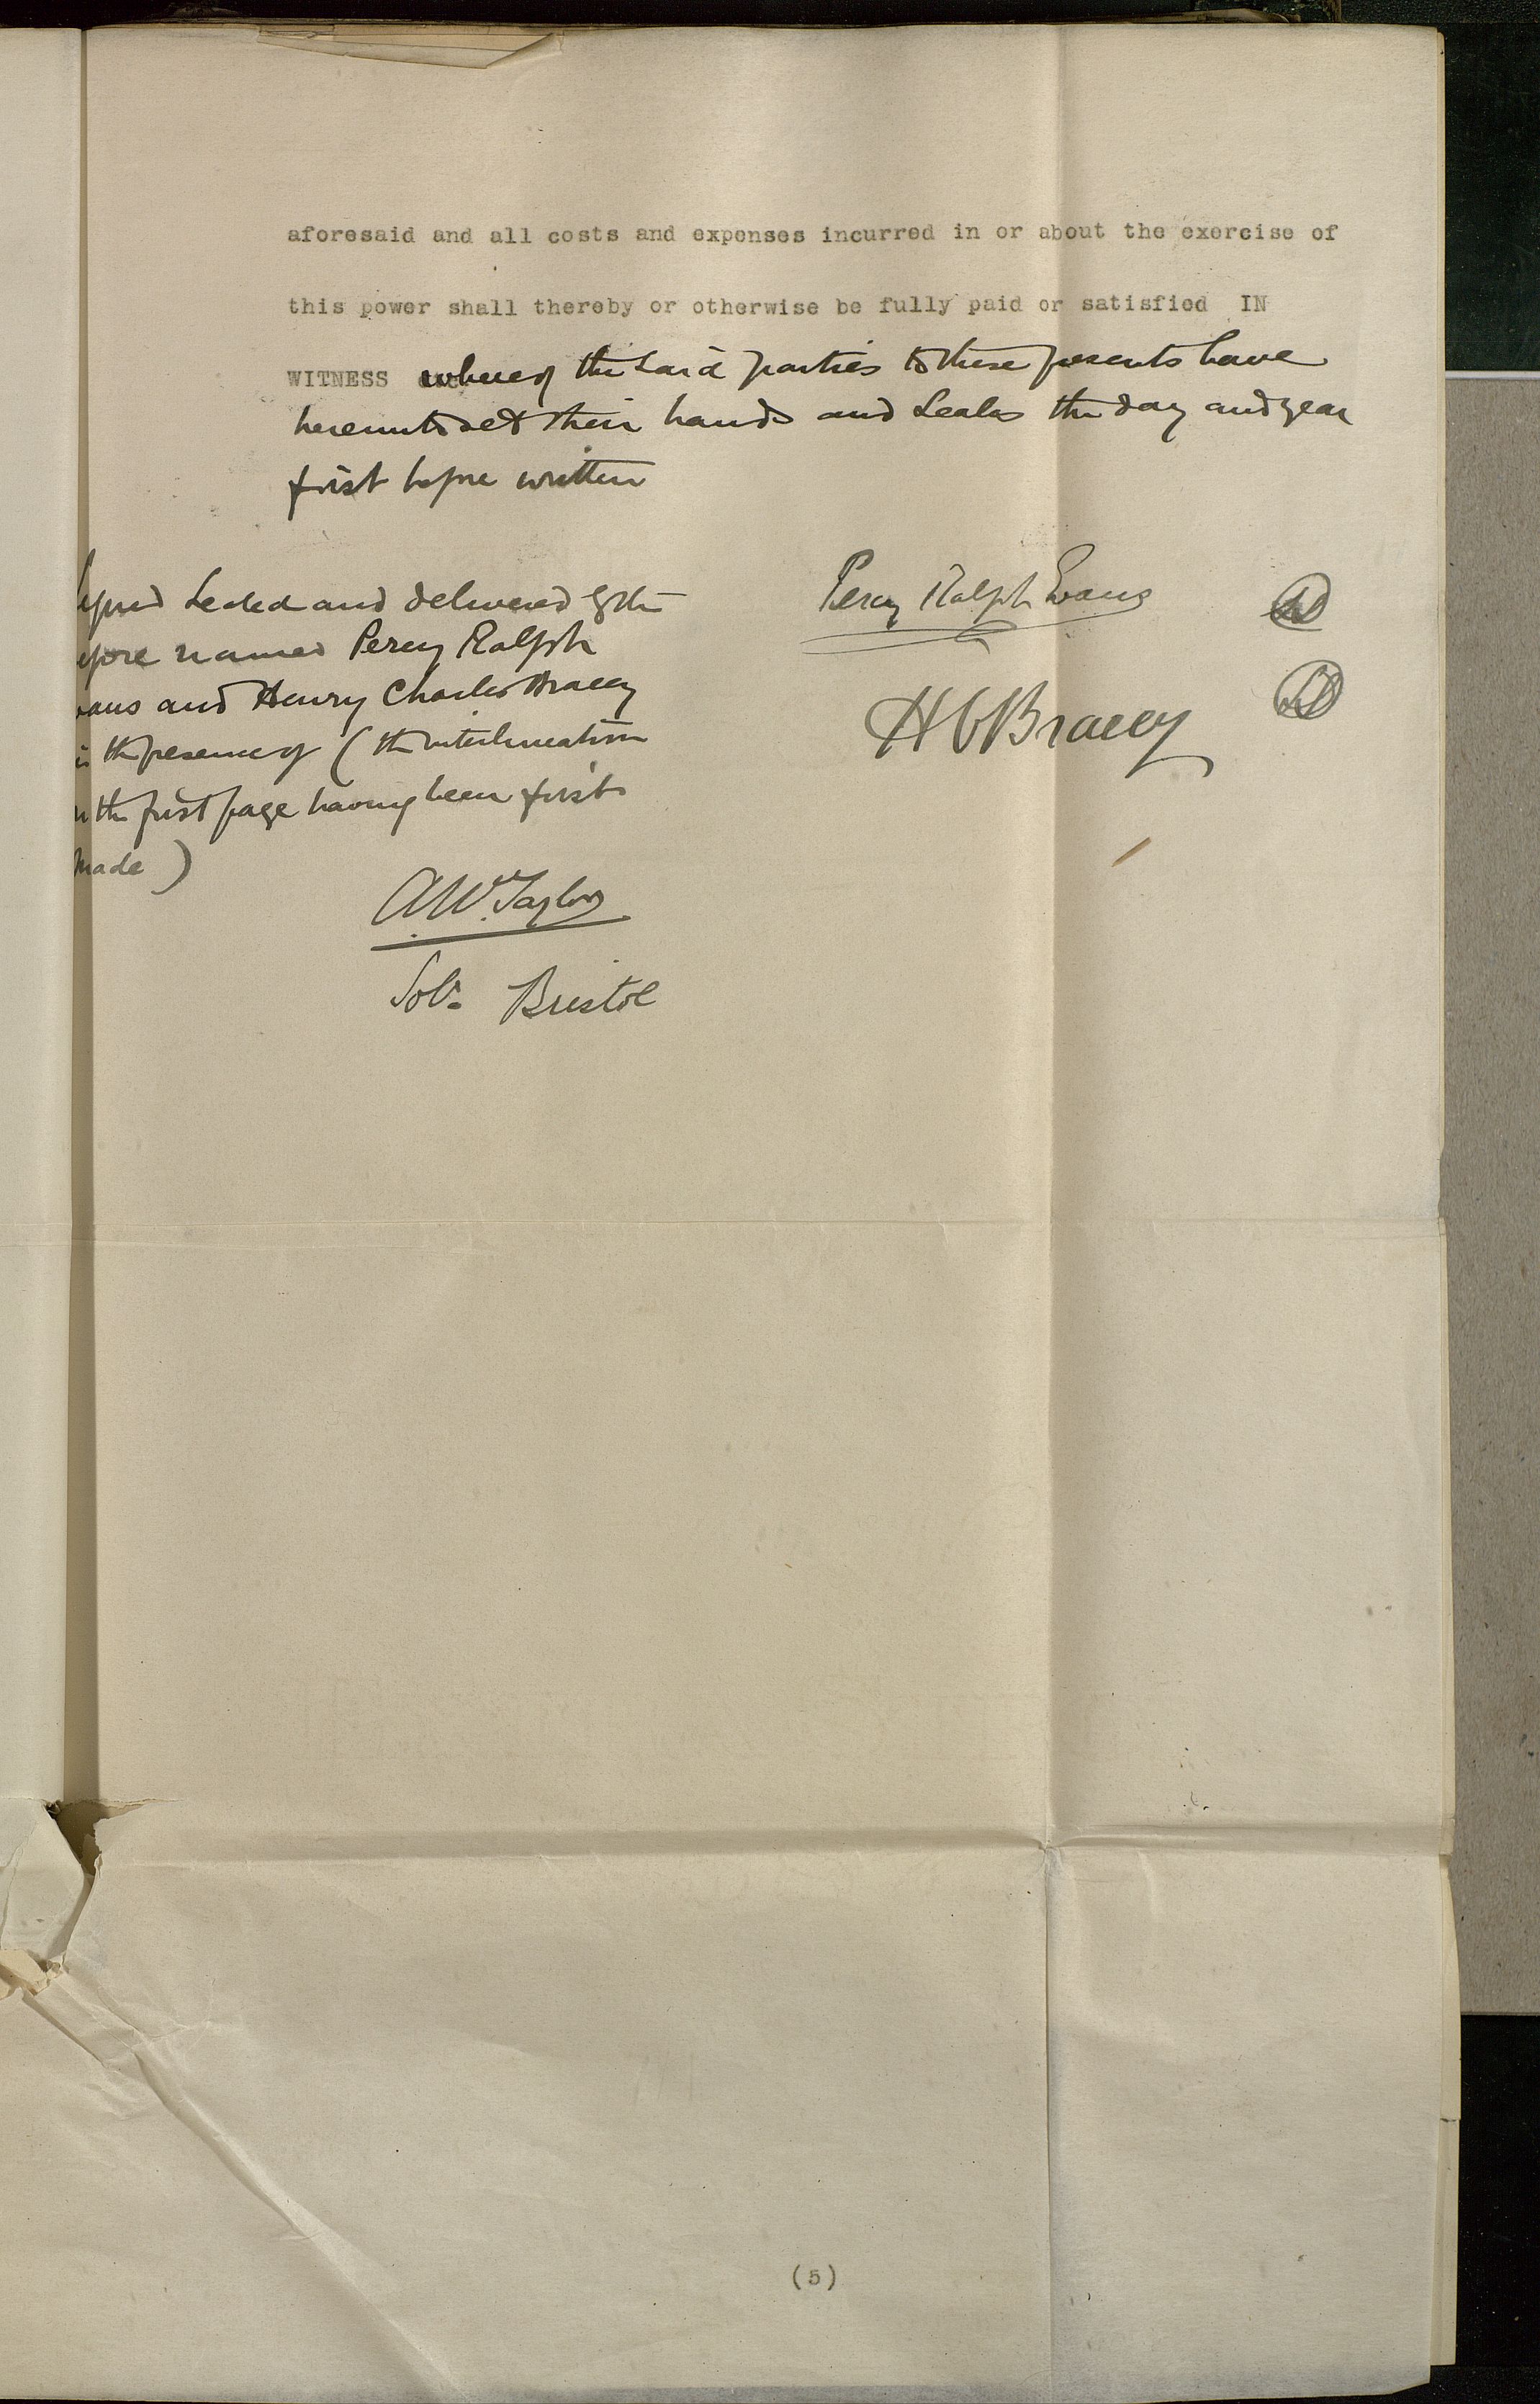 aforesaid and all costs and expenses incurred in or about the exercise of
this power shall thereby or otherwise be fully paid or satisfied IN
WITNESS whereof the said parties to these presents have
hereunto set their hands and seals the day and year
first before written
Sealed and delivered by the
named Percy Ralph
and Henry Charles Bracey
in the presence of (the interlineation
the first page having been first
made)
Percy Ralph Evans
H C Bracey
A.W. Taylor
Solr Bristol
(5)